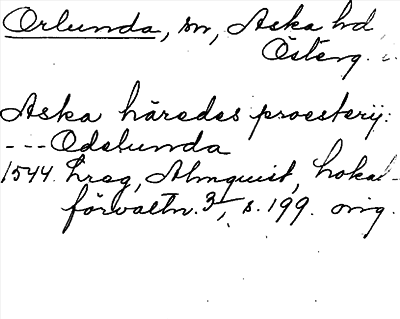 Orlunda, sn, Aska hd,
Österg.
Aska häredes proestery:
--- Odelunda
1544. hreg, Almquist, Lokal-
förvaltn. 3, s. 199. orig.